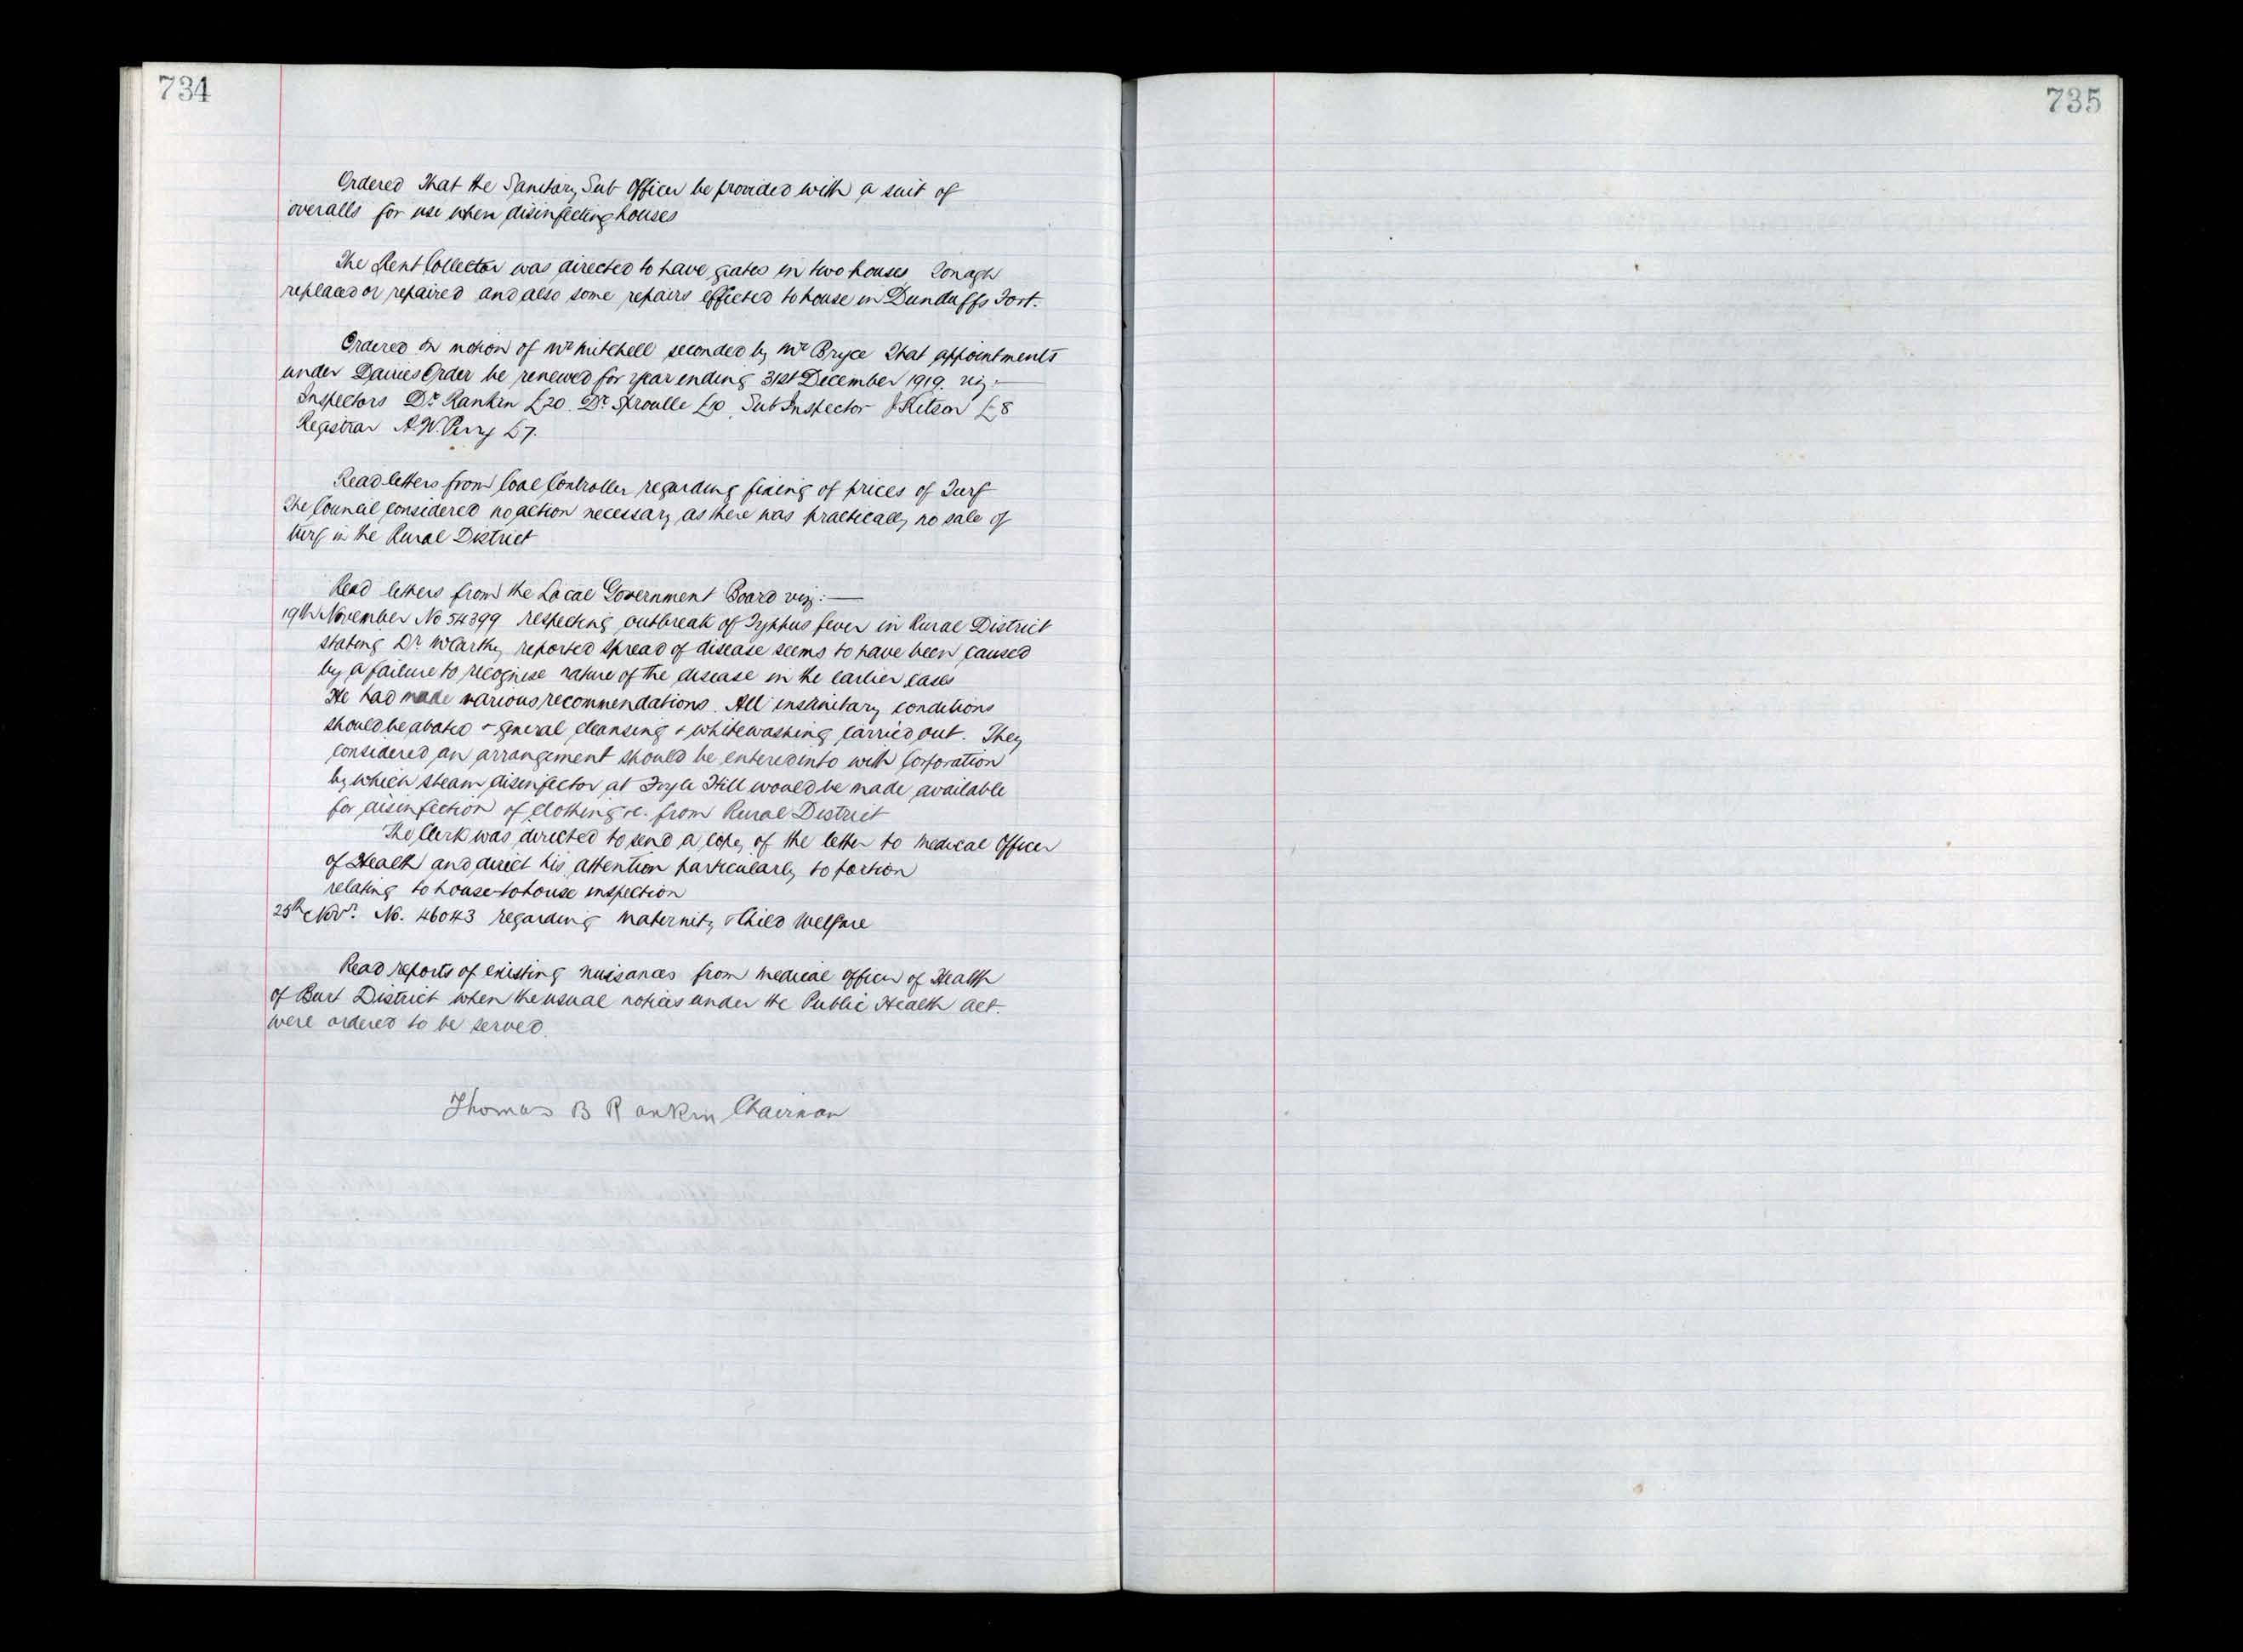 734
Ordered That the Sanitary Sub Officer be provided with a suit of
overalls for use when disinfecting houses
The Rent Collector was directed to have grates in two houses Tonagh
replaced or repaired and also some repairs effected to house in Dunduffs Fort.
Ordered on motion of Mr Mitchell seconded by Mr Bryce That appointments
under Dairies Order be renewed for year ending 31st December 1919. viz:—
Inspectors Dr Rankin £20. Dr Sproulle £10, Sub Inspector J Kitson £8
Registrar A.W. Perry £7.
Read letters from Coal Controller regarding fixing of prices of Turf
The Council considered no action necessary as there was practically no sale of
turf in the Rural District
Read letters from the Local Government Board viz:—
19th November No 54399 respecting outbreak of Typhus fever in Rural District
stating Dr McCarthy reported spread of disease seems to have been caused
by a failure to recognise nature of the disease in the earlier cases
He had made various recommendations. All insanitary conditions
should be abated + general cleansing + whitewashing carried out. They
considered an arrangement should be entered into with Corporation
by which steam disinfector at Foyle Hill would be made available
for disinfection of clothing &c. from Rural District
The Clerk was directed to send a copy of the letter to Medical Officer
of Health and direct his attention particularly to portion
relating to house-to-house inspection
25th Novr. No. 46043 regarding Maternity & Child Welfare
Read reports of existing nuisances from Medical Officer of Health
of Burt District when the usual notices under the Public Health Act.
were ordered to be served.
Thomas B Rankin Chairman
735